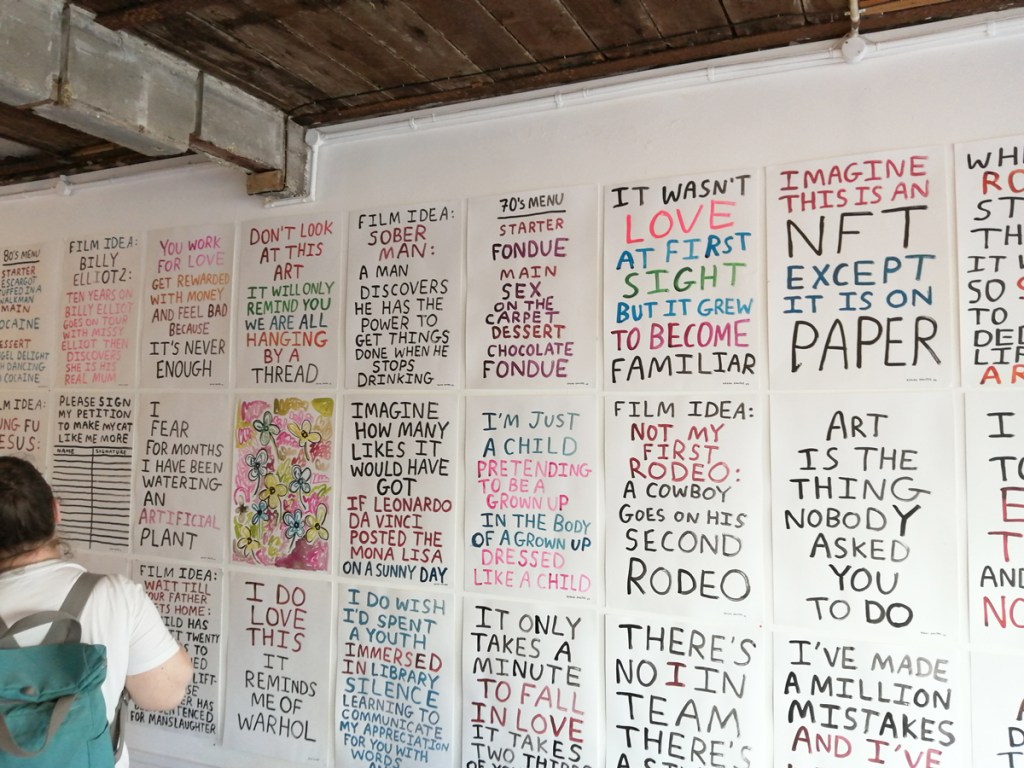 80's MENU
STARTER
ESCARGOT
IN A
WALKMAN
MAIN
COCAINE
DESSERT
ANGEL DELIGHT
COCAINE
FILM IDEA:
BILLY
ELLIOT 2:
TEN YEARS ON
BILLY ELLIOT
GOES ON TOUR
WITH MISSY
ELLIOT THEN
DISCOVERS
SHE IS HIS
REAL MUM
YOU WORK
FOR LOVE
GET REWARDED
WITH MONEY
AND FEEL BAD
BECAUSE
IT'S NEVER
ENOUGH
DON'T LOOK
AT THIS
ART
IT WILL ONLY
REMIND YOU
WE ARE ALL
HANGING
BY A
THREAD
FILM IDEA:
SOBER
MAN:
A MAN
DISCOVERS
HE HAS THE
POWER TO
GET THINGS
DONE WHEN HE
STOPS
DRINKING
70's MENU
STARTER
FONDUE
MAIN
SEX
ON THE
CARPET
DESSERT
CHOCOLATE
FONDUE
IT WASN'T
LOVE
AT FIRST
SIGHT
BUT IT GREW
TO BECOME
FAMILIAR
IMAGINE
THIS IS AN
NFT
EXCEPT
IT IS ON
PAPER
IT
SO
TO
PLEASE SIGN
MY PETITION
TO MAKE MY CAT
LIKE ME MORE
NAME SIGNATURE
I
FEAR
FOR MONTHS
I HAVE BEEN
WATERING
AN
ARTIFICIAL
PLANT
IMAGINE
HOW MANY
LIKES IT
WOULD HAVE
GOT
IF LEONARDO
DA VINCI
POSTED THE
MONA LISA
ON A SUNNY DAY
I'M JUST
A CHILD
PRETENDING
TO BE A
GROWN UP
IN THE BODY
OF A GROWN UP
DRESSED
LIKE A CHILD
FILM IDEA:
NOT MY
FIRST
RODEO:
A COWBOY
GOES ON HIS
SECOND
RODEO
ART
IS THE
THING
NOBODY
ASKED
YOU
TO DO
I
AND
FILM IDEA:
WAIT TILL
YOUR FATHER
GETS HOME:
CHILD HAS
TWENTY
TO
HAS
SENTENCED
FOR MANSLAUGHTER
I DO
LOVE
THIS
IT
REMINDS
ME OF
WARHOL
I DO WISH
I'D SPENT
A YOUTH
IMMERSED
IN LIBRARY
SILENCE
LEARNING TO
COMMUNICATE
MY APPRECIATION
FOR YOU WITH
WORDS
IT ONLY
TAKES A
MINUTE
TO FALL
IN LOVE
IT TAKES
TWO THINGS
THERE'S
NO I IN
TEAM
THERE'S
I'VE MADE
A MILLION
MISTAKES
AND I'VE